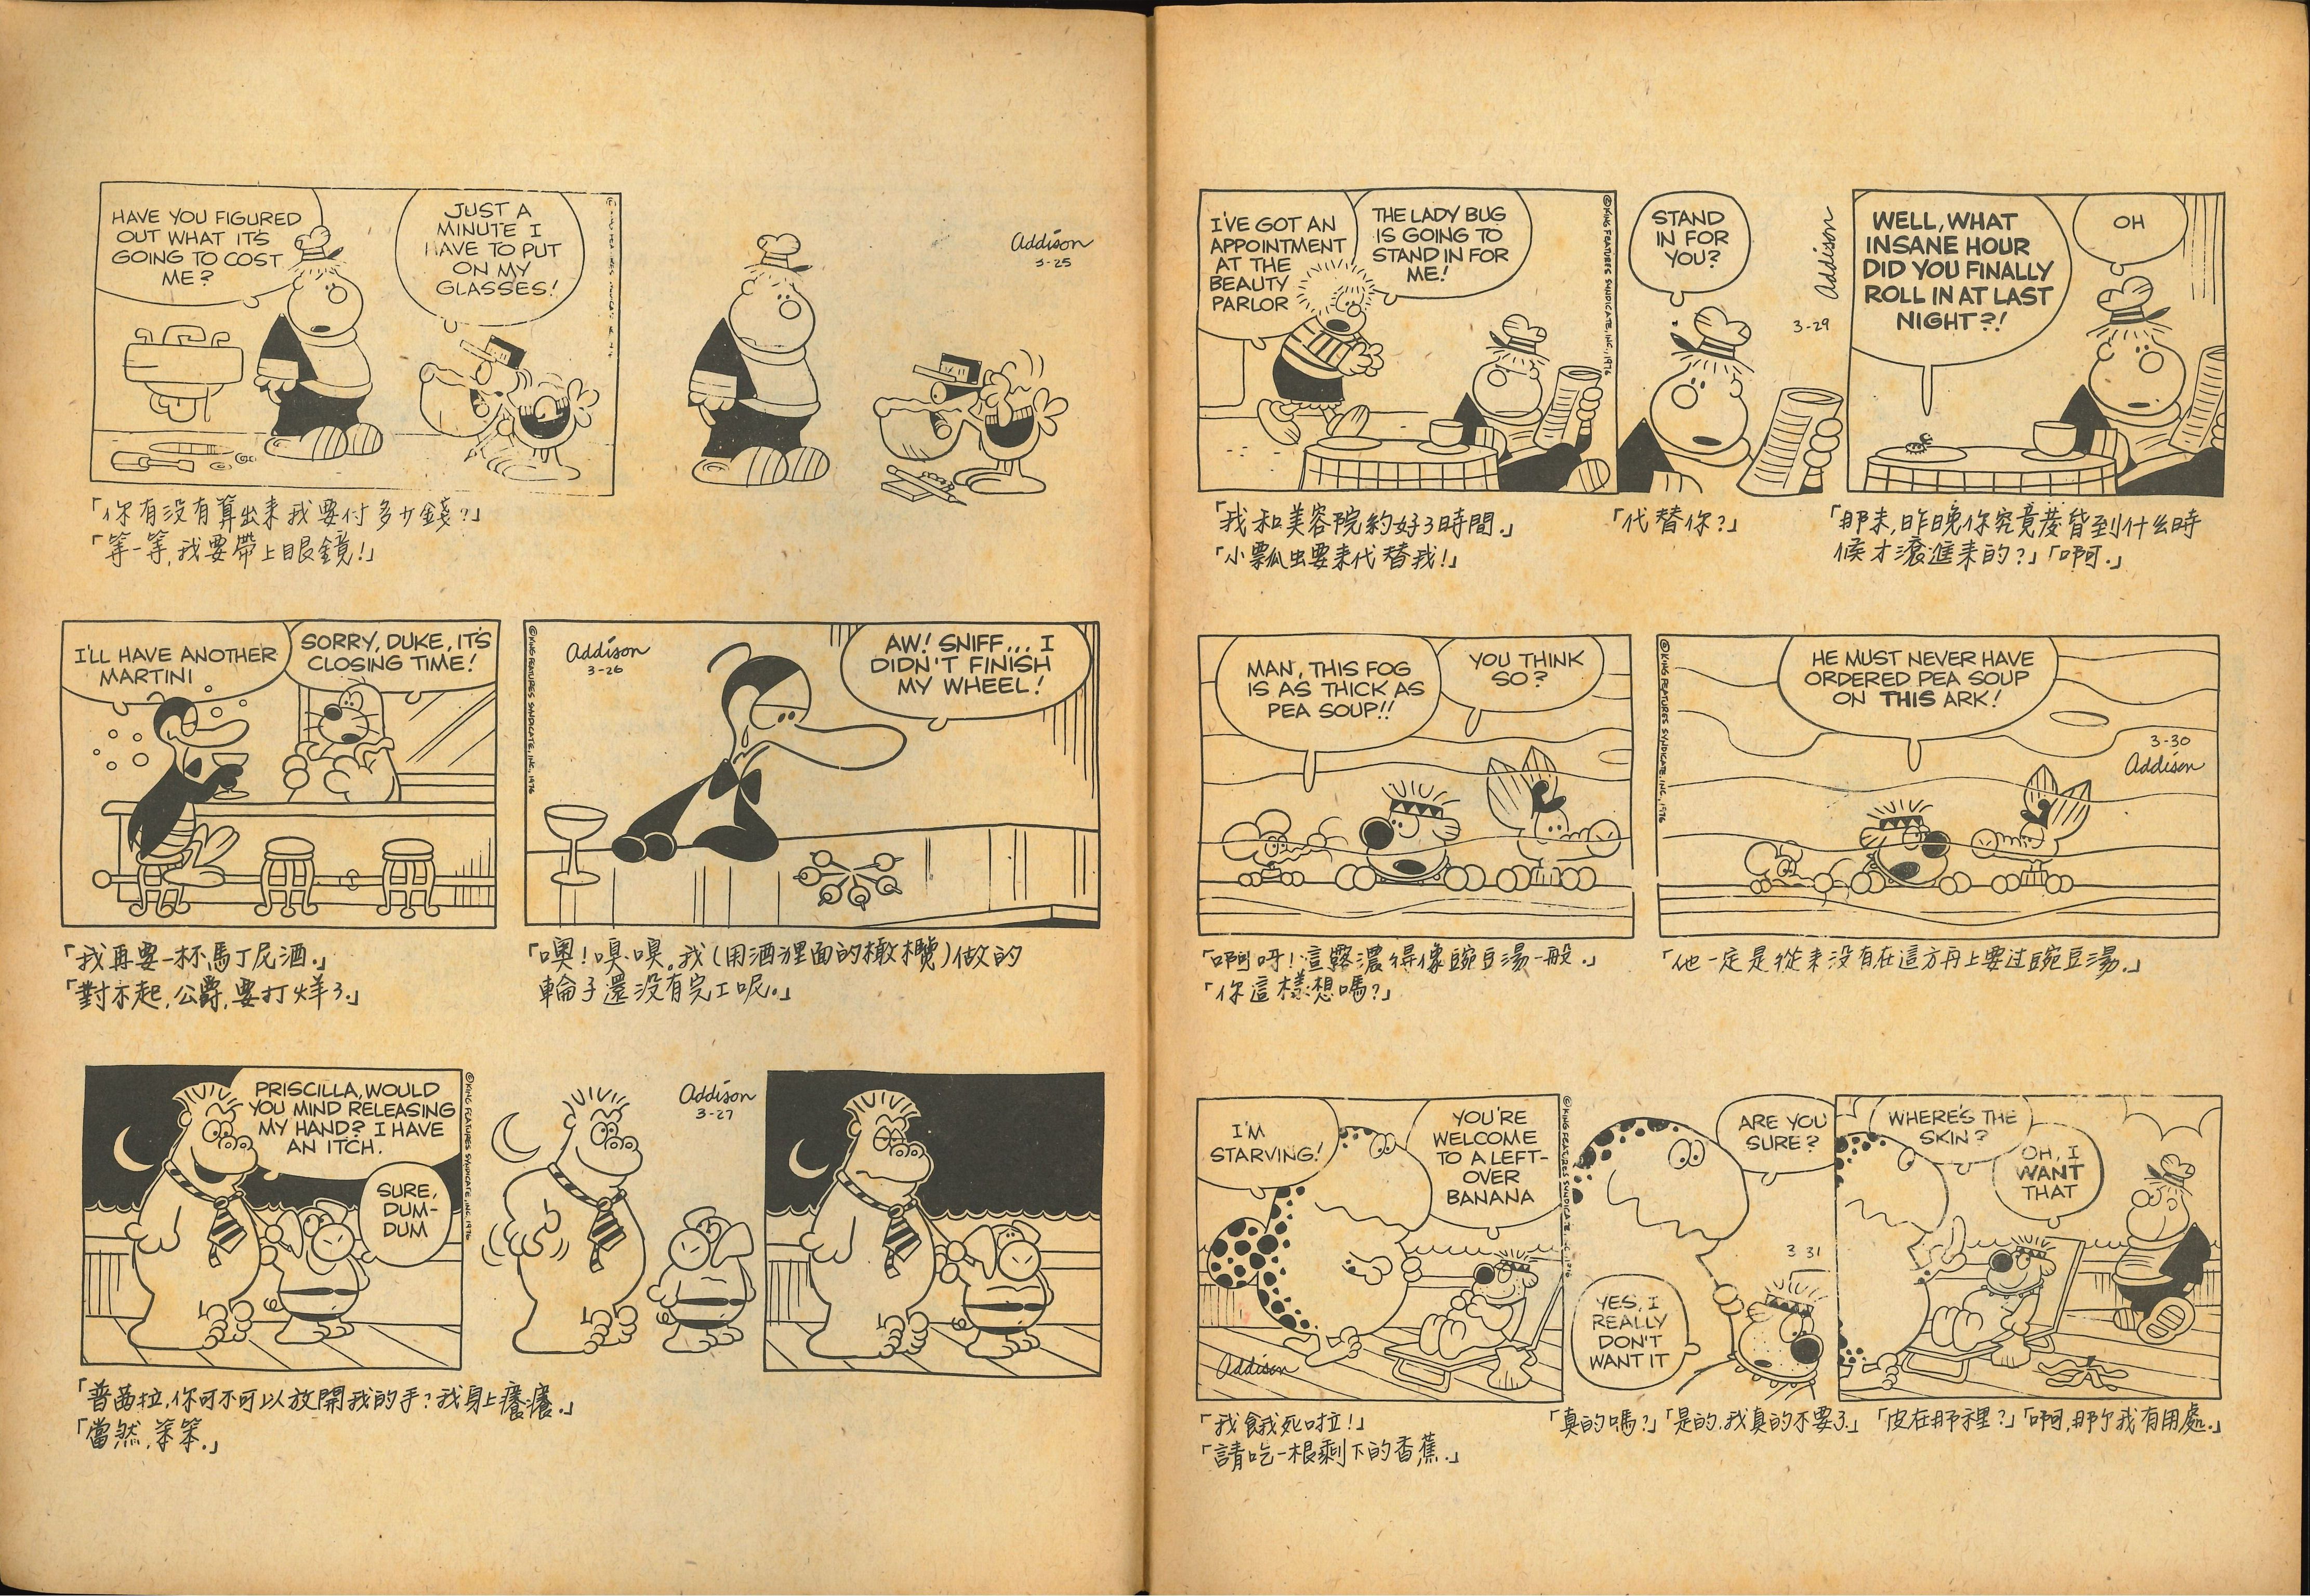 HAVE YOU FIGURED
OUT WHAT IT'S
GOING TO COST
ME?
JUST A
MINUTE I
HAVE TO PUT
ON MY
GLASSES!
Addison
3-25
「你有没有算出来我要付多少錢?」
「等一等,我要帶上眼鏡!」
I'LL HAVE ANOTHER
MARTINI
SORRY, DUKE, IT'S
CLOSING TIME!
©KING FEATURES SYNDICATE, INC., 1976
Addison
3-26
AW! SNIFF... I
DIDN'T FINISH
MY WHEEL!
「我再要一杯馬丁尼酒.」
「對不起,公爵,要打烊了.」
「噢!嗅.嗅.我(用酒裡面的橄欖)做的
輪子還没有完工呢.」
PRISCILLA, WOULD
YOU MIND RELEASING
MY HAND? I HAVE
AN ITCH.
SURE,
DUM-
DUM
©KING FEATURES SYNDICATE, INC. 1976
Addison
3-27
「普茜拉,你可不可以放開我的手?我身上癢癢.」
「當然,笨笨.」
I'VE GOT AN
APPOINTMENT
AT THE
BEAUTY
PARLOR
THE LADY BUG
IS GOING TO
STAND IN FOR
ME!
©KING FEATURES SYNDICATE, INC., 1976
STAND
IN FOR
YOU?
Addison
3-29
WELL, WHAT
INSANE HOUR
DID YOU FINALLY
ROLL IN AT LAST
NIGHT?!
OH
「我和美容院約好了時間.」
「小瓢虫要来代替我!」
「代替你?」
「那末,昨晚你究竟
到什么時
候才滾進来的?」「啊.」
MAN, THIS FOG
IS AS THICK AS
PEA SOUP!!
YOU THINK
SO?
©KING FEATURES SYNDICATE, INC., 1976
HE MUST NEVER HAVE
ORDERED PEA SOUP
ON THIS ARK!
3-30
Addison
「啊呀!這霧濃得像豌豆湯一般.」
「你這樣想嗎?」
「他一定是從来没有在這方舟上要过豌豆湯.」
I'M
STARVING!
YOU'RE
WELCOME
TO A LEFT-
OVER
BANANA
Addison
©KING FEATURES SYNDICATE, INC., 1976
ARE YOU
SURE?
3 31
YES, I
REALLY
DON'T
WANT IT
WHERE'S THE
SKIN?
OH, I
WANT
THAT
「我餓死啦!」
「請吃一根剩下的香蕉.」
「真的嗎?」「是的.我真的不要了.」
「皮在那裡?」「啊,那个我有用處.」